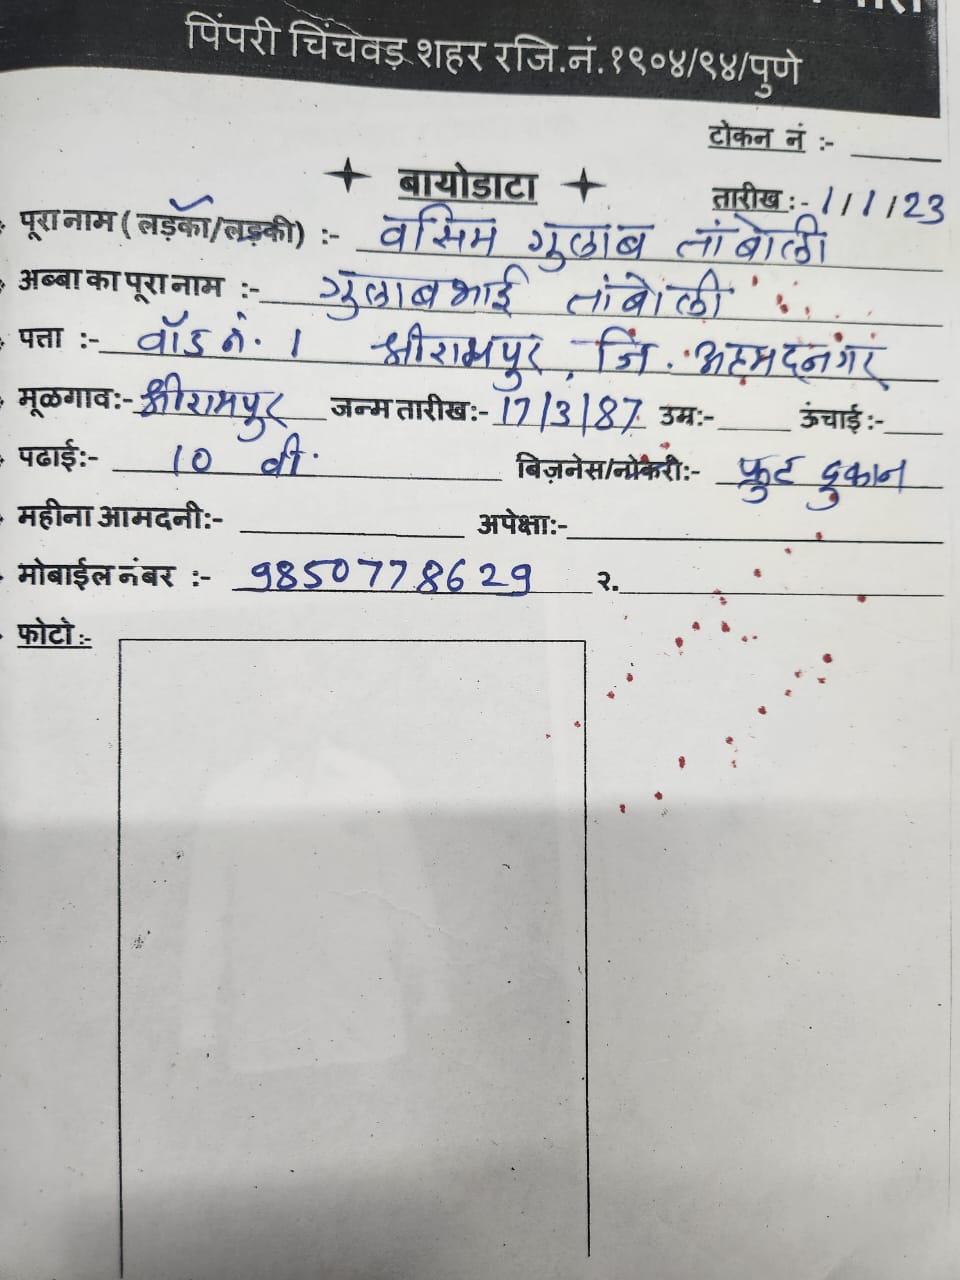 पिंपरी चिंचवड़ शहर रजि.नं.१९०४/९४/पुणे
टोकन नं :-
बायोडाटा
तारीख :- 1/1/23
पूरा नाम ( लड़का/लड़की) :- वसिम गुलाब तांबोली
अब्बा का पूरा नाम :- गुलाबभाई तांबोली
पत्ता :- वॉर्ड नं. 1 श्रीरामपुर, जि. अहमदनगर
मूळगाव:- श्रीरामपुर जन्म तारीख:- 17/3/87 उम्र:- ऊंचाई :-
पढाई:- 10 वी. बिज़नेस/नोकरी:- फ्रुट दुकान
महीना आमदनी:- अपेक्षा:-
मोबाईल नंबर :- 9850778629 २.
फोटो :-